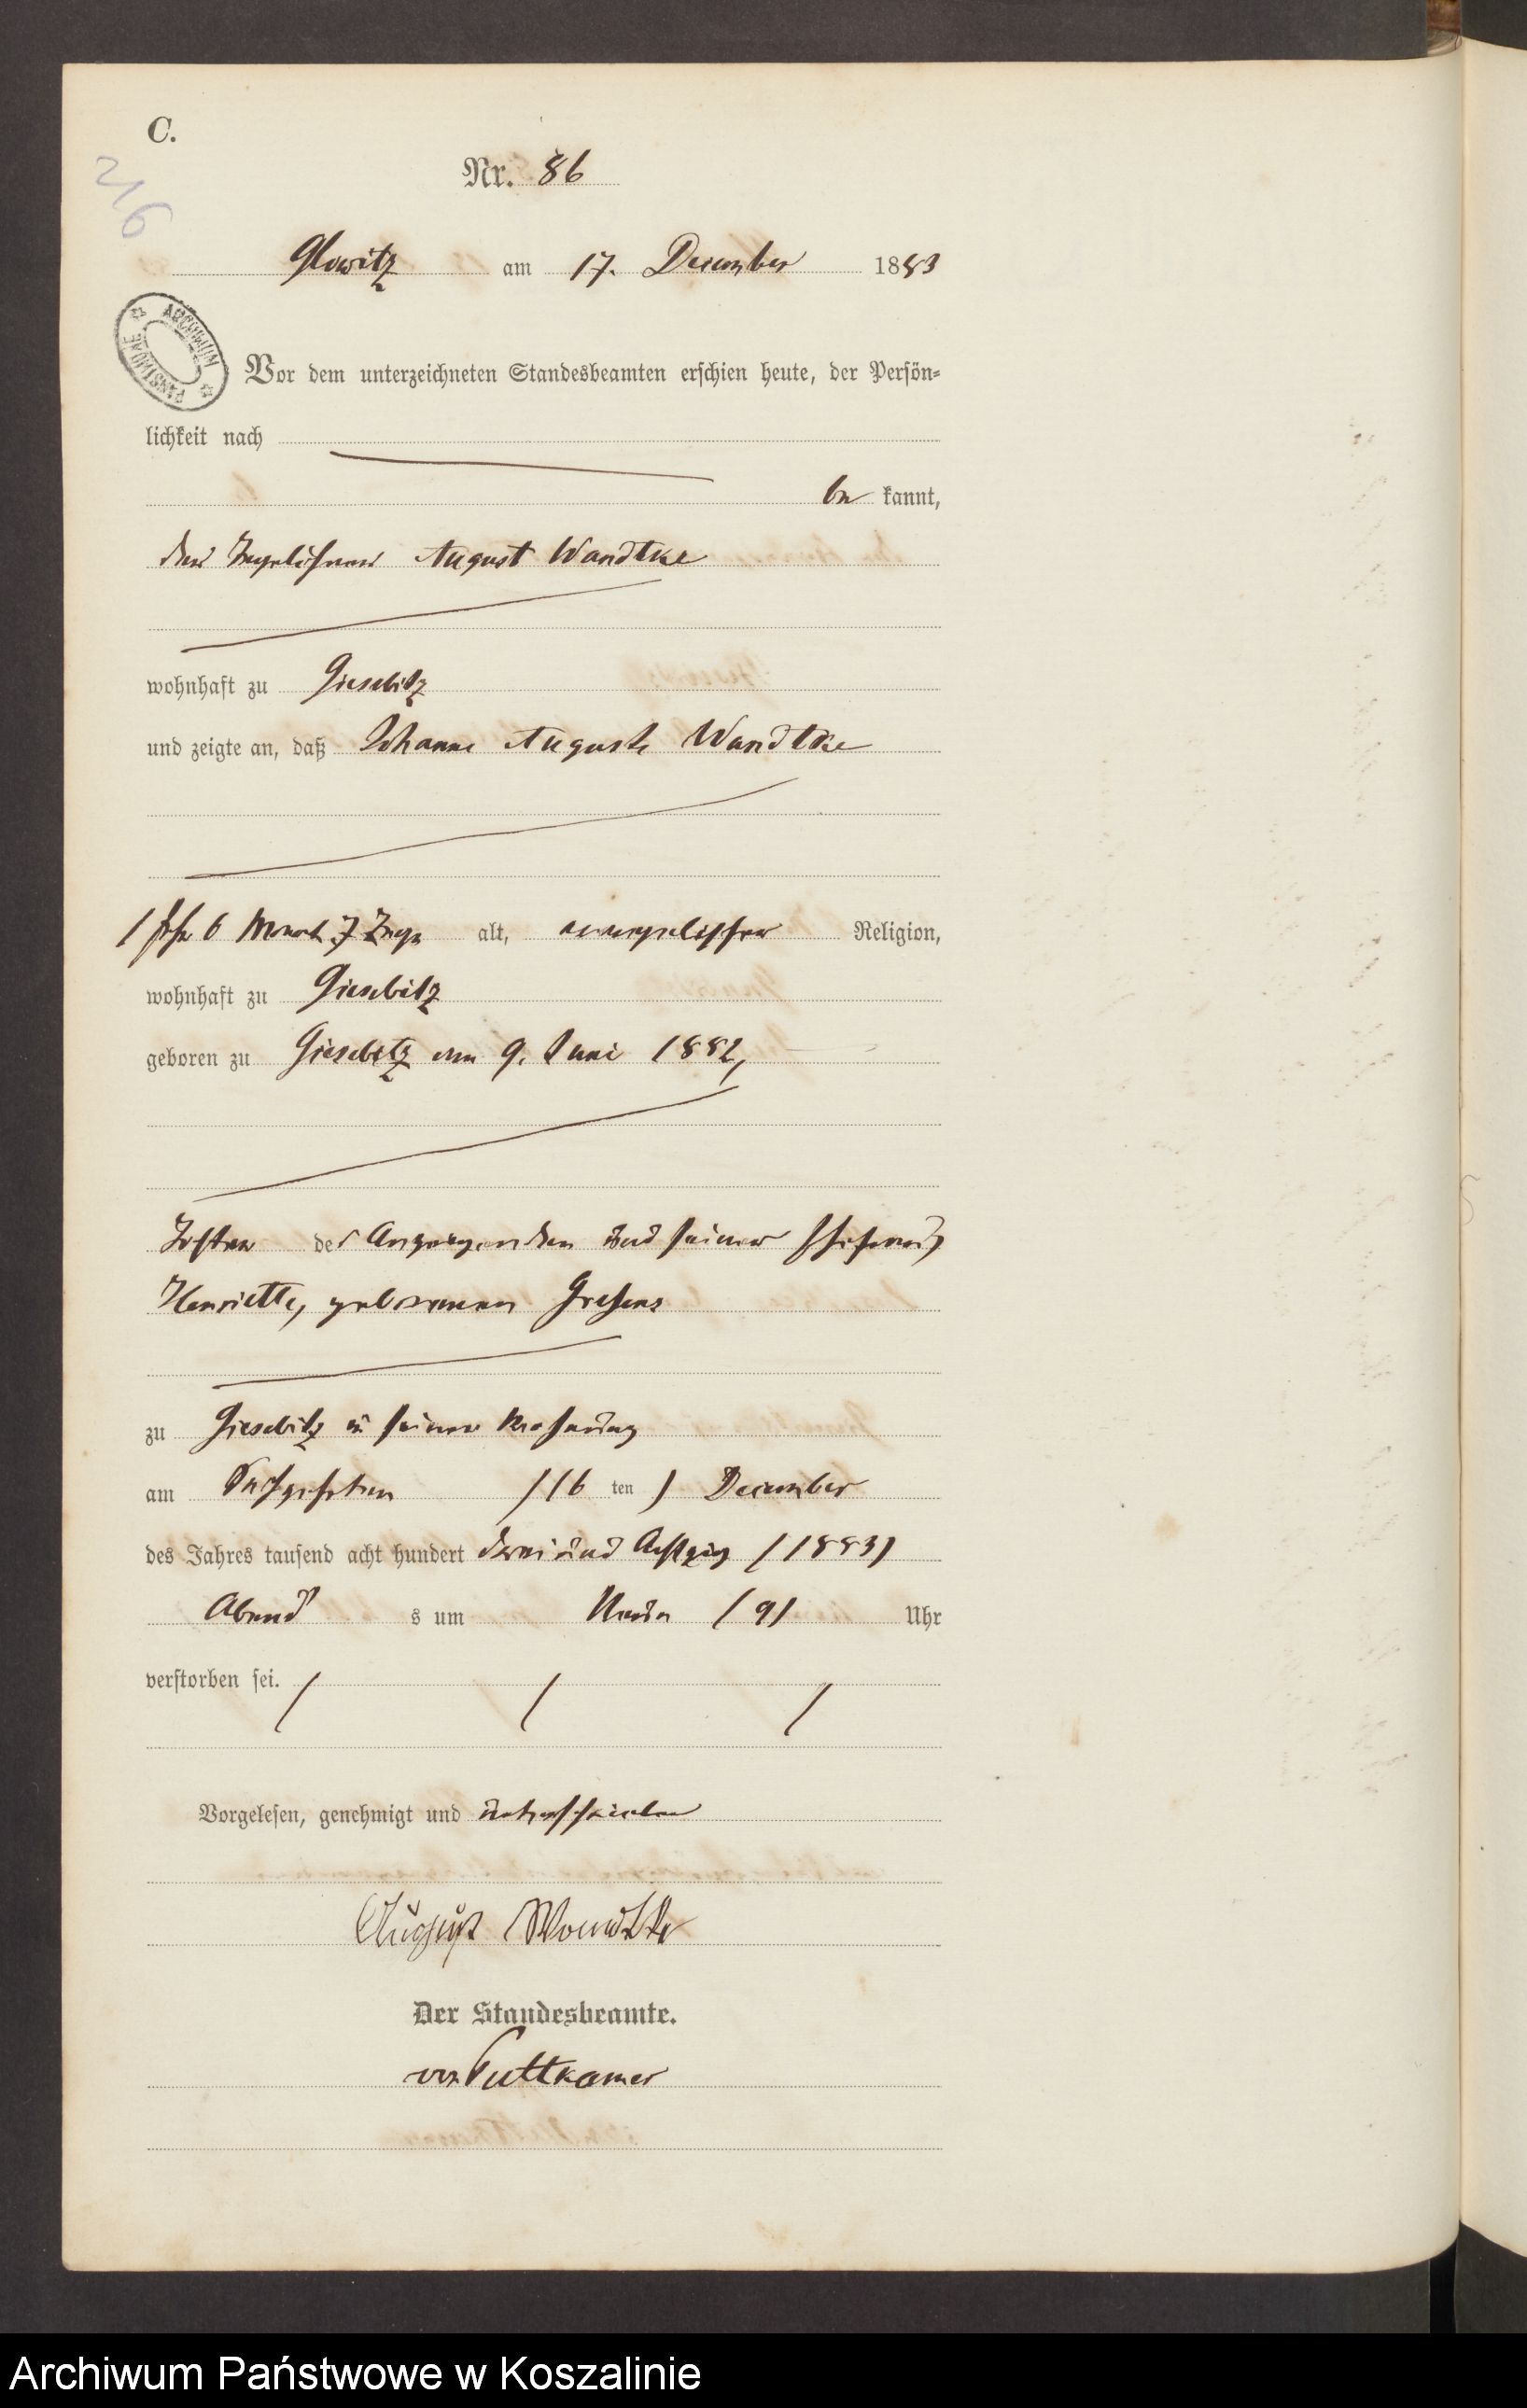 C.
216
Nr. 86
Glowitz am 17. December 1883
ARCHIWUM PAŃSTWOWE
Vor dem unterzeichneten Standesbeamten erschien heute, der Persön-
lichkeit nach
be kannt,
der Tagelöhner August Wandtke
wohnhaft zu Giesebitz
und zeigte an, daß Johanne Auguste Wandtke
1 Jahr 6 Monat 7 Tage alt, evangelischer Religion,
wohnhaft zu Giesebitz
geboren zu Giesebitz am 9. Juni 1882,
Tochter des Anzeigenden und seiner Ehefrau
Henriette, geborenen
zu Giesebitz in seiner Wohnung
am Sechszehnten (16 ten) December
des Jahres tausend acht hundert drei und Achtzig (1883)
Abend s um Neun (9) Uhr
verstorben sei.
Vorgelesen, genehmigt und unterschrieben
August Wandtke
Der Standesbeamte.
von Puttkamer
Archiwum Państwowe w Koszalinie